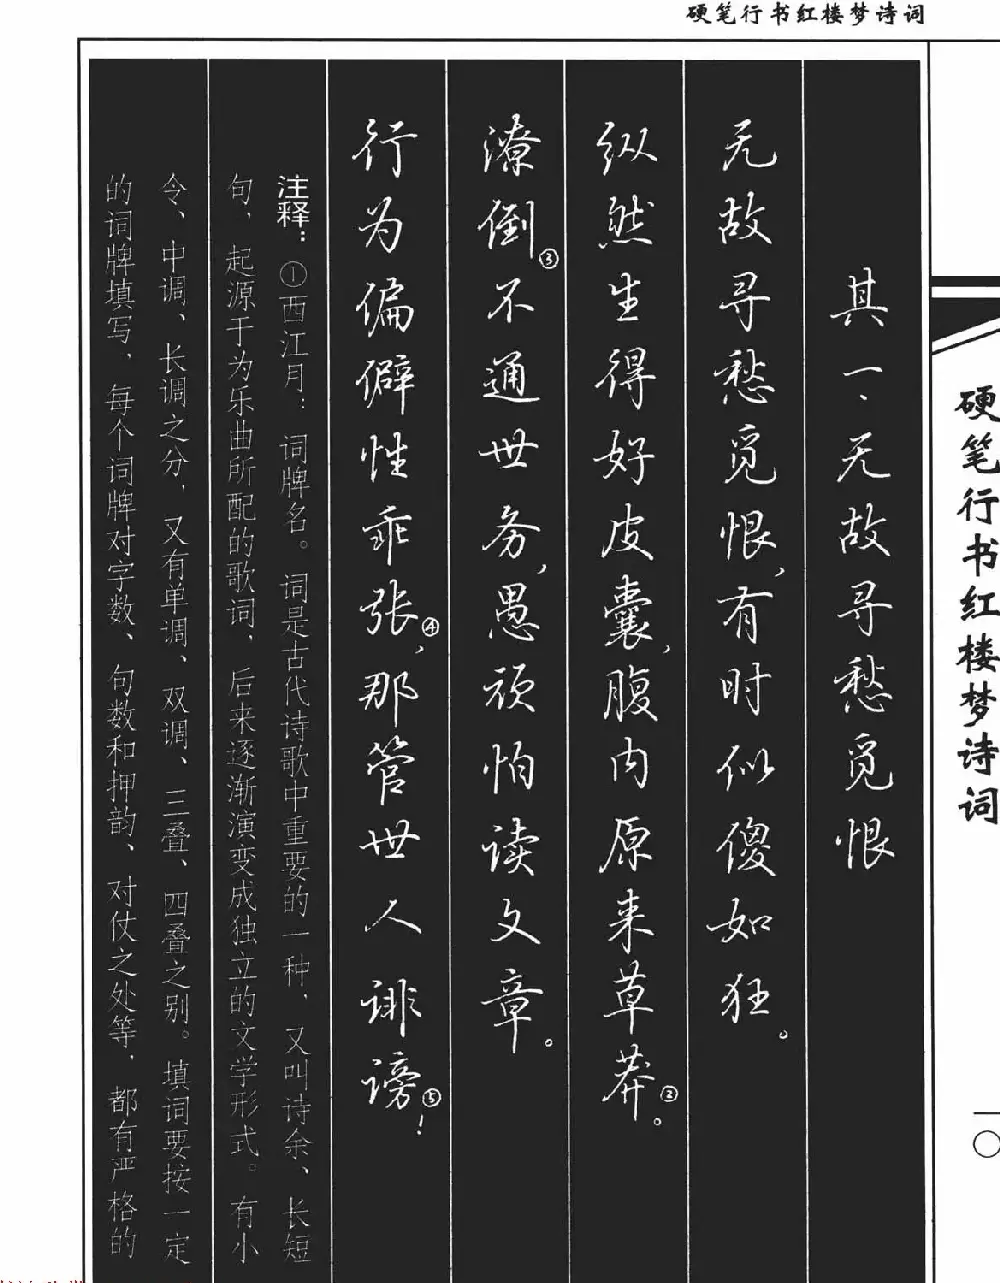 硬笔行书红楼梦诗词
其一、无故寻愁觅恨
无故寻愁觅恨，有时似傻如狂。
纵然生得好皮囊，腹内原来草莽②。
潦倒③不通世务，愚顽怕读文章。
行为偏僻性乖张④，那管世人诽谤⑤！
注释：①西江月：词牌名。词是古代诗歌中重要的一种，又叫诗余、长短
句，起源于为乐曲所配的歌词，后来逐渐演变成独立的文学形式。有小
令、中调、长调之分，又有单调、双调、三叠、四叠之别。填词要按一定
的词牌填写，每个词牌对字数、句数和押韵、对仗之处等，都有严格的
硬笔行书红楼梦诗词
一〇